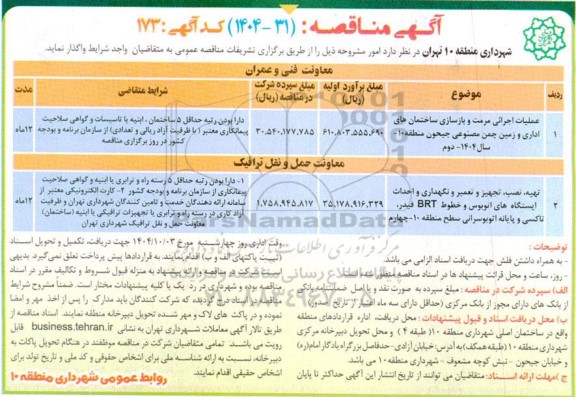 آگهی مناقصه: (۳۱ -۱۴۰۴) کد آگهی: ۱۷۳
شهرداری منطقه ۱۰ تهران در نظر دارد امور مشروحه ذیل را از طریق برگزاری تشریفات مناقصه عمومی به متقاضیان واجد شرایط واگذار نماید.
معاونت فنی و عمران
ردیف موضوع مبلغ برآورد اولیه (ریال) مبلغ سپرده شرکت در مناقصه (ریال) شرایط متقاضی مدت
۱ عملیات اجرائی مرمت و بازسازی ساختمان های اداری و زمین چمن مصنوعی جیحون منطقه۱۰- سال۱۴۰۴- دوم ۶۱۰,۸۰۳,۵۵۵,۶۹۰ ۳۰,۵۴۰,۱۷۷,۷۸۵ دارا بودن رتبه حداقل ۵ ساختمان ، ابنیه یا تاسیسات و گواهی صلاحیت پیمانکاری معتبر ( با ظرفیت آزاد ریالی و تعدادی) از سازمان برنامه و بودجه کشور در روز برگزاری مناقصه ۱۲ماه
معاونت حمل و نقل ترافیک
۲ تهیه، نصب، تجهیز و تعمیر و نگهداری و احداث ایستگاه های اتوبوس و خطوط BRT فیدر، تاکسی و پایانه اتوبوسرانی سطح منطقه ۱۰-چهارم ۳۵,۱۷۸,۹۱۶,۳۲۹ ۱,۷۵۸,۹۴۵,۸۱۷ ۱- دارا بودن رتبه حداقل ۵ رسته راه و ترابری یا ابنیه و گواهی صلاحیت پیمانکاری از سازمان برنامه و بودجه کشور ۲- کارت الکترونیکی معتبر از سامانه ارائه دهندگان خدمت و تامین کنندگان شهرداری تهران و ظرفیت آزاد کاری در رسته راه و ترابری یا تجهیزات ترافیکی یا ابنیه (ساختمان) معاونت حمل و نقل ترافیک شهرداری تهران ۱۲ماه
توضیحات :
- به همراه داشتن فلش جهت دریافت اسناد الزامی می باشد.
- روز، ساعت و محل قرائت پیشنهاد ها در اسناد مناقصه
الف) سپرده شرکت در مناقصه : مبلغ سپرده به صورت نقد و یا اصل ضمانتنامه بانکی
از بانک های دارای مجوز از بانک مرکزی (حداقل دارای سه ماه اعتبار از تاریخ
ب) محل دریافت اسناد و قبول پیشنهادات : محل دریافت، اداره قراردادهای منطقه
واقع در ساختمان اصلی شهرداری منطقه ۱۰( طبقه ۴ ) و محل تحویل دبیرخانه مرکزی
شهرداری منطقه ۱۰ (طبقه همکف) به آدرس: خیابان آزادی- حدفاصل بزرگراه یادگار امام(ره)
و خیابان جیحون - نبش کوچه مسعوف - شهرداری منطقه ۱۰ می باشد
ج) مهلت ارائه اسناد: متقاضیان می توانند از تاریخ انتشار این آگهی حداکثر تا پایان
وقت اداری روز چهارشنبه مورخ ۱۴۰۴/۱۰/۰۳ جهت دریافت، تکمیل و تحویل اسناد
(تثبیت پاکتهای الف و ب) اقدام نمایند. به قراردادها پیش پرداخت تعلق نمی گیرد. بدیهی
است شرکت در مناقصه و ارائه پیشنهاد به منزله قبول شروط و تکالیف مقرر در اسناد
مناقصه بوده و شهرداری در رد یک یا کلیه پیشنهادات مختار است. ضمناً مشروح شرایط
در اسناد درج گردیده که شرکت کنندگان باید مدارک را پس از اخذ مهر و امضا
نموده و در پاکت های لاک و مهر شده تحویل دبیرخانه منطقه نمایند. اسناد مناقصه از
طریق تالار آگهی معاملات شهرداری تهران به نشانی business.tehran.ir قابل
رویت می باشد. تمامی متقاضیان شرکت در مناقصه موظفند در هنگام تحویل پاکات به
دبیرخانه، نسبت به ارائه شناسه ملی برای اشخاص حقوقی و کد ملی و تاریخ تولد برای
اشخاص حقیقی اقدام نمایند.
روابط عمومی شهرداری منطقه ۱۰